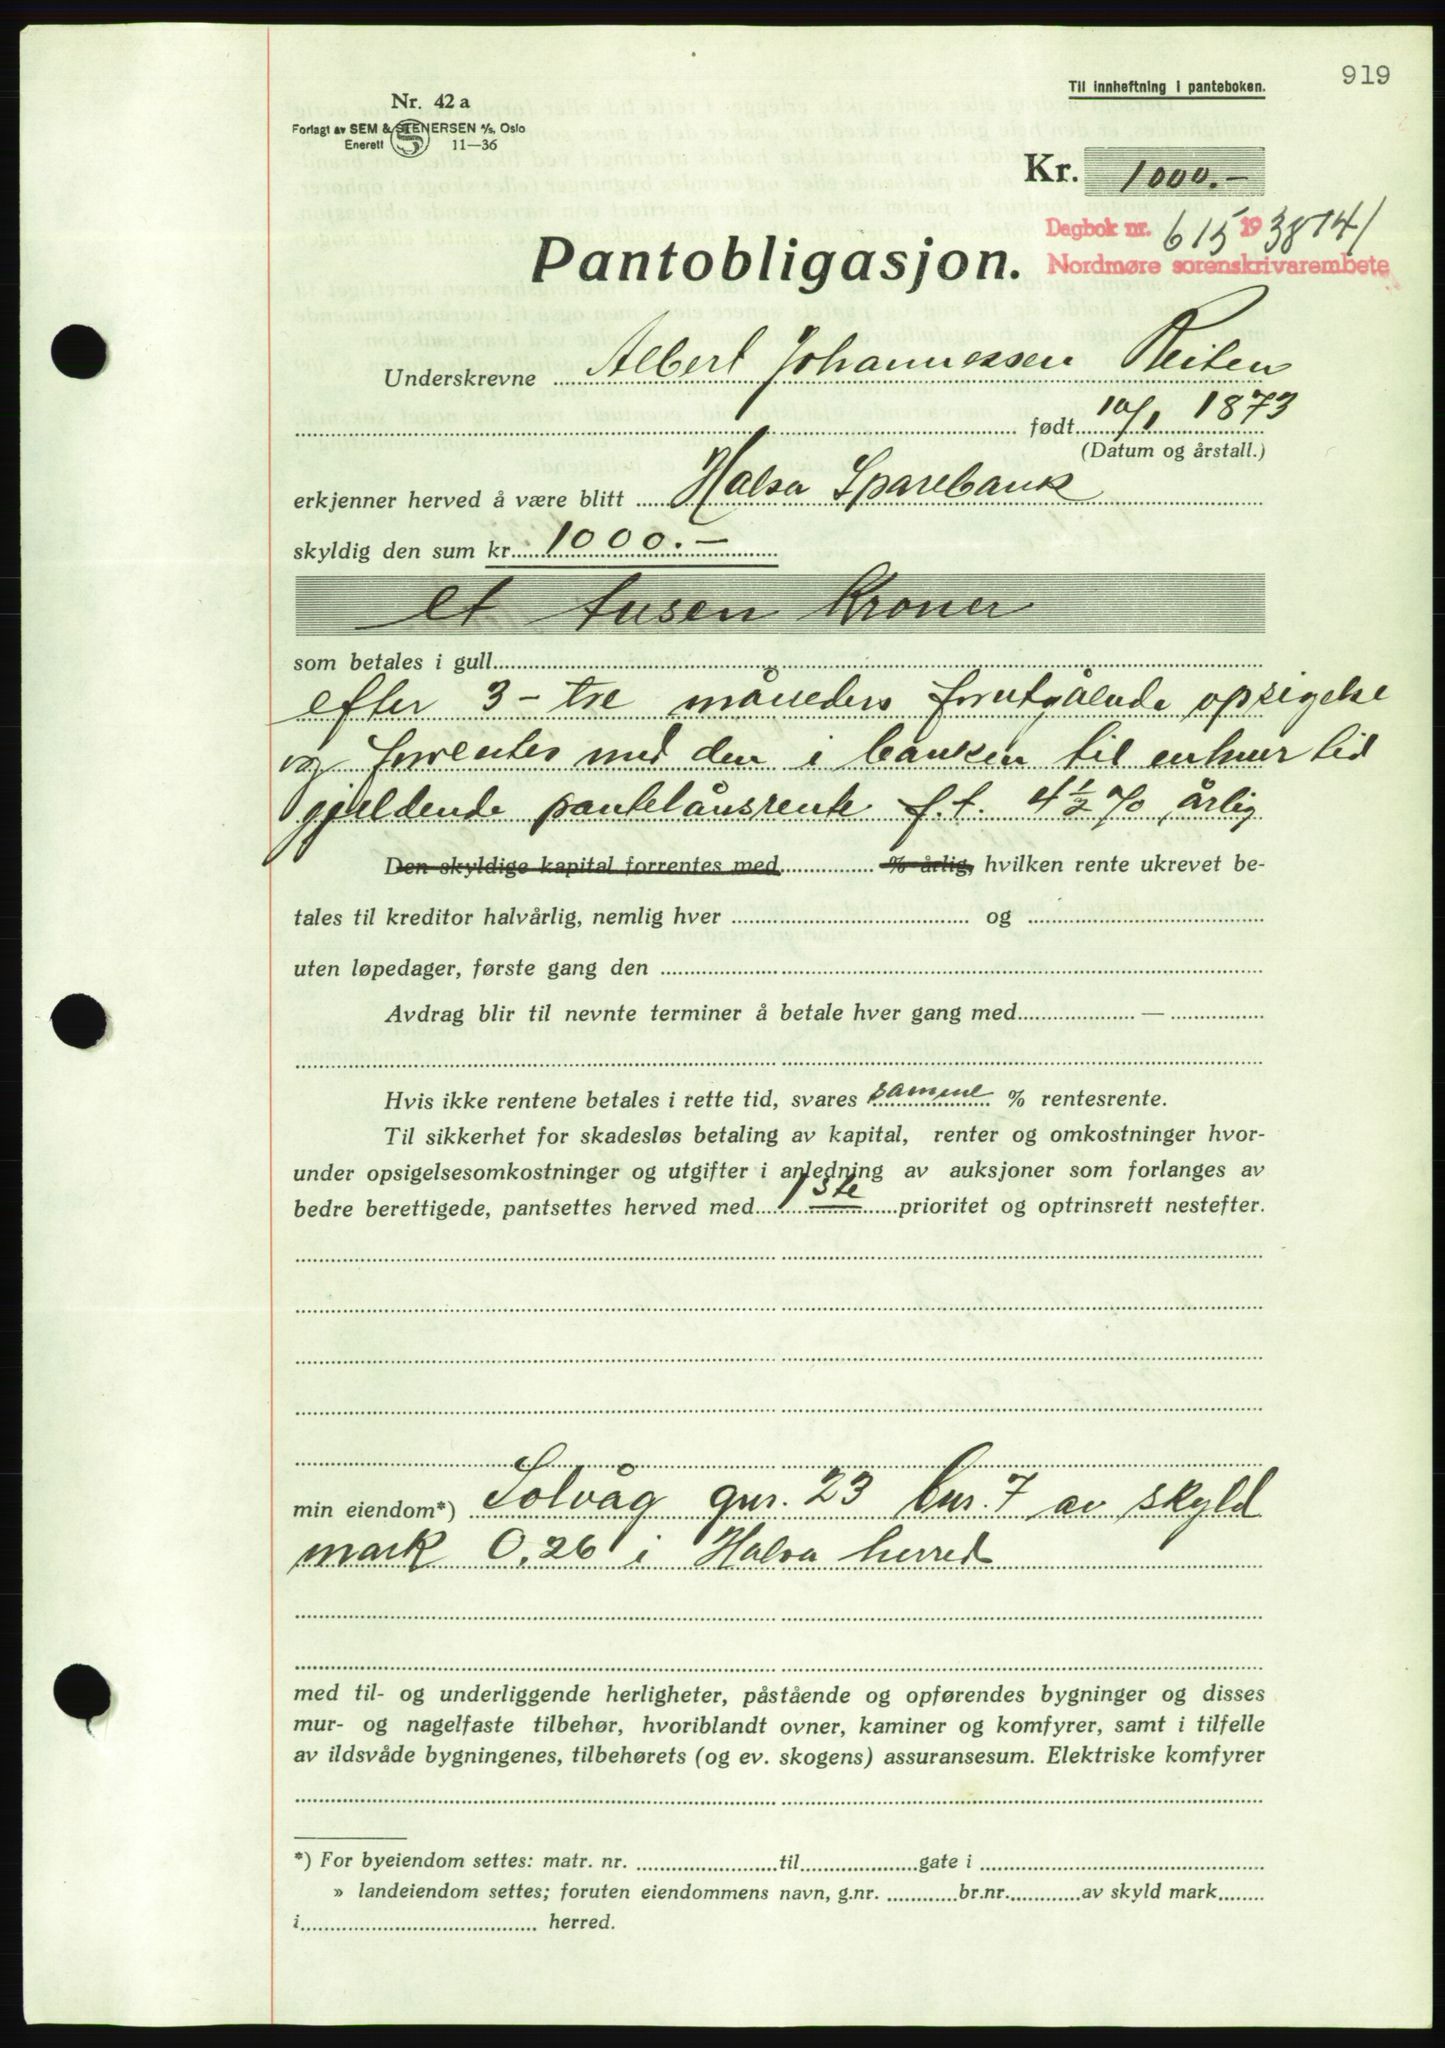 919
Til innheftning i panteboken.
Nr. 42 a
Forlagt av SEM & STENERSEN A/S, Oslo
Enerett 11—36
Kr. 1000.-
Dagbok nr. 615 1938
Nordmøre sorenskrivarembete
Pantobligasjon.
Underskrevne Albert Johannessen Reiten
født 10/1 1873
(Datum og årstall.)
erkjenner herved å være blitt Halsa Sparebank
skyldig den sum kr. 1000.-
et tusen kroner
som betales i gull
efter 3 - tre måneders forutgående opsigelse
og forrentes med den i banken til enhver tid
gjeldende pantelånsrente f.t. 4½ % årlig
Den skyldige kapital forrentes med % årlig, hvilken rente ukrevet be-
tales til kreditor halvårlig, nemlig hver og
uten løpedager, første gang den
Avdrag blir til nevnte terminer å betale hver gang med —
Hvis ikke rentene betales i rette tid, svares samme % rentesrente.
Til sikkerhet for skadesløs betaling av kapital, renter og omkostninger hvor-
under opsigelsesomkostninger og utgifter i anledning av auksjoner som forlanges av
bedre berettigede, pantsettes herved med 1ste prioritet og optrinsrett nestefter.
min eiendom*) Solvåg gnr. 23 bnr. 7 av skyld
mark 0,26 i Halsa herred
med til- og underliggende herligheter, påstående og opførendes bygninger og disses
mur- og nagelfaste tilbehør, hvoriblandt ovner, kaminer og komfyrer, samt i tilfelle
av ildsvåde bygningenes, tilbehørets (og ev. skogens) assuransesum. Elektriske komfyrer
*) For byeiendom settes: matr. nr. til gate i
» landeiendom settes; foruten eiendommens navn, g.nr. br.nr. av skyld mark
i herred.